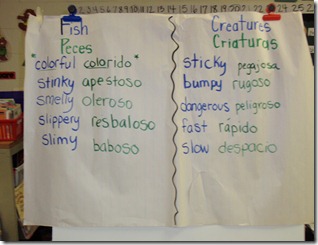 Fish
Peces
*colorful colorido*
stinky apestoso
smelly oleroso
slippery resbaloso
slimy baboso
Creatures
Criaturas
sticky pegajosa
bumpy rugoso
dangerous peligroso
fast rápido
slow despacio